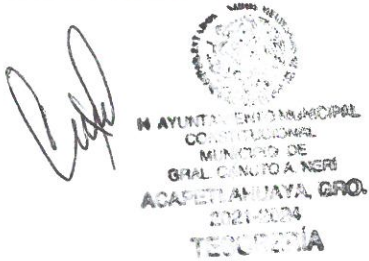 H AYUNTAMIENTO MUNICIPAL
CONSTITUCIONAL
MUNICIPIO DE
GRAL. CANUTO A. NERI
ACAPETLAHUAYA, GRO.
2021-2024
TESORERÍA